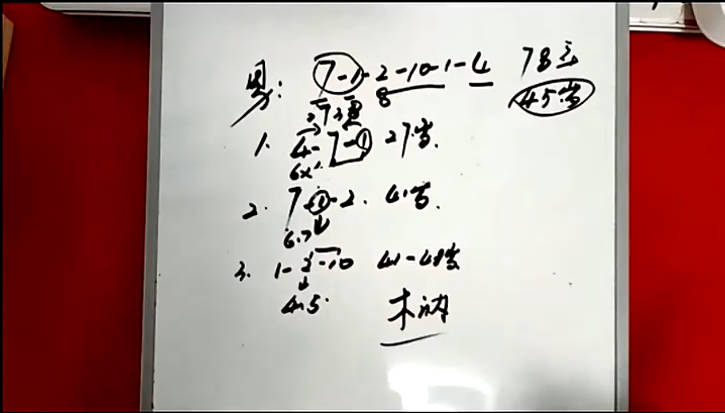 男: 7-1-2-10-1-4 78年
8 45岁
1. 4-7-1 27岁.
6x
2. 7-1-2. 41岁.
6.7
3. 1-2-10 41-48岁
4.5.
木讷